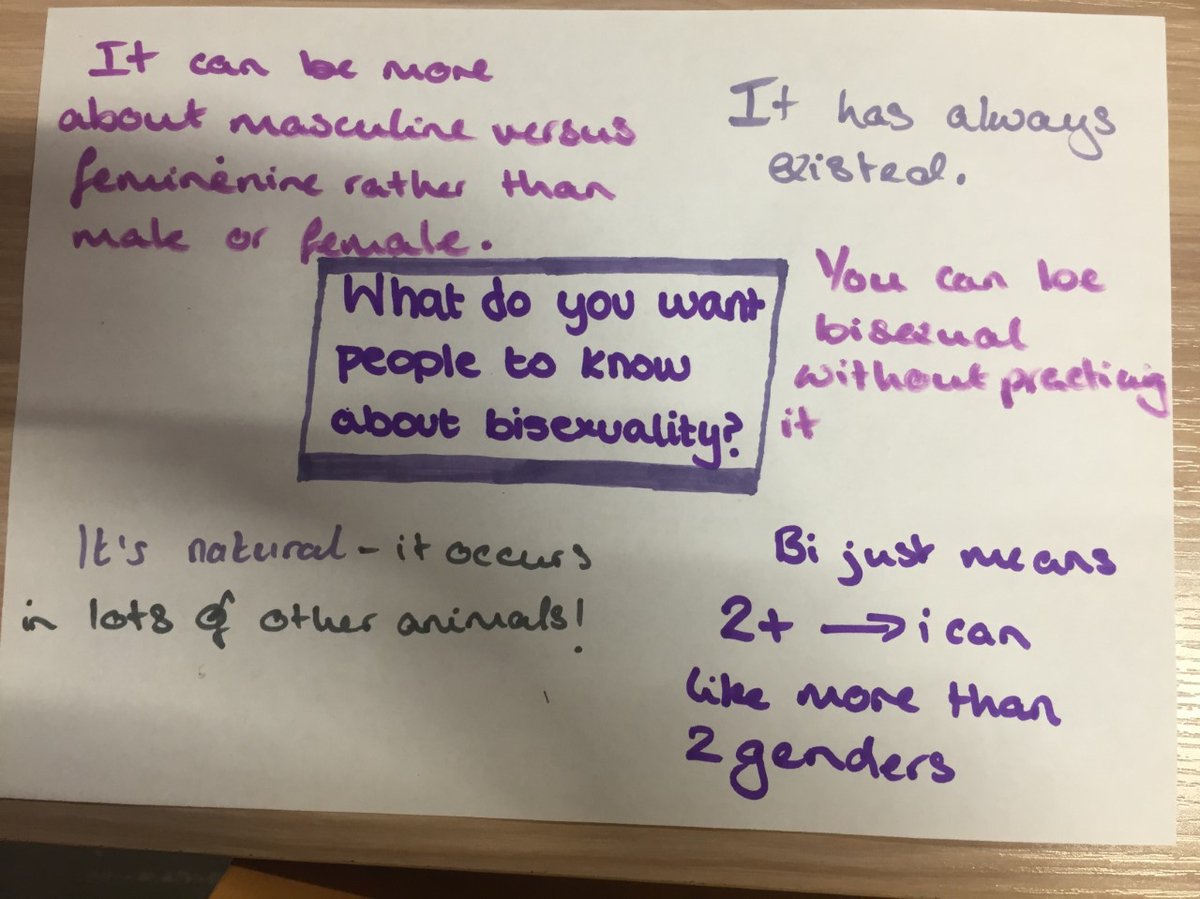 It can be more
about masculine versus
feminénine rather than
male or female.
It has always
existed.
What do you want
people to know
about bisexuality?
You can be
bisexual
without practicing
it
It's natural - it occurs
in lots of other animals!
Bi just means
2+ → i can
like more than
2 genders